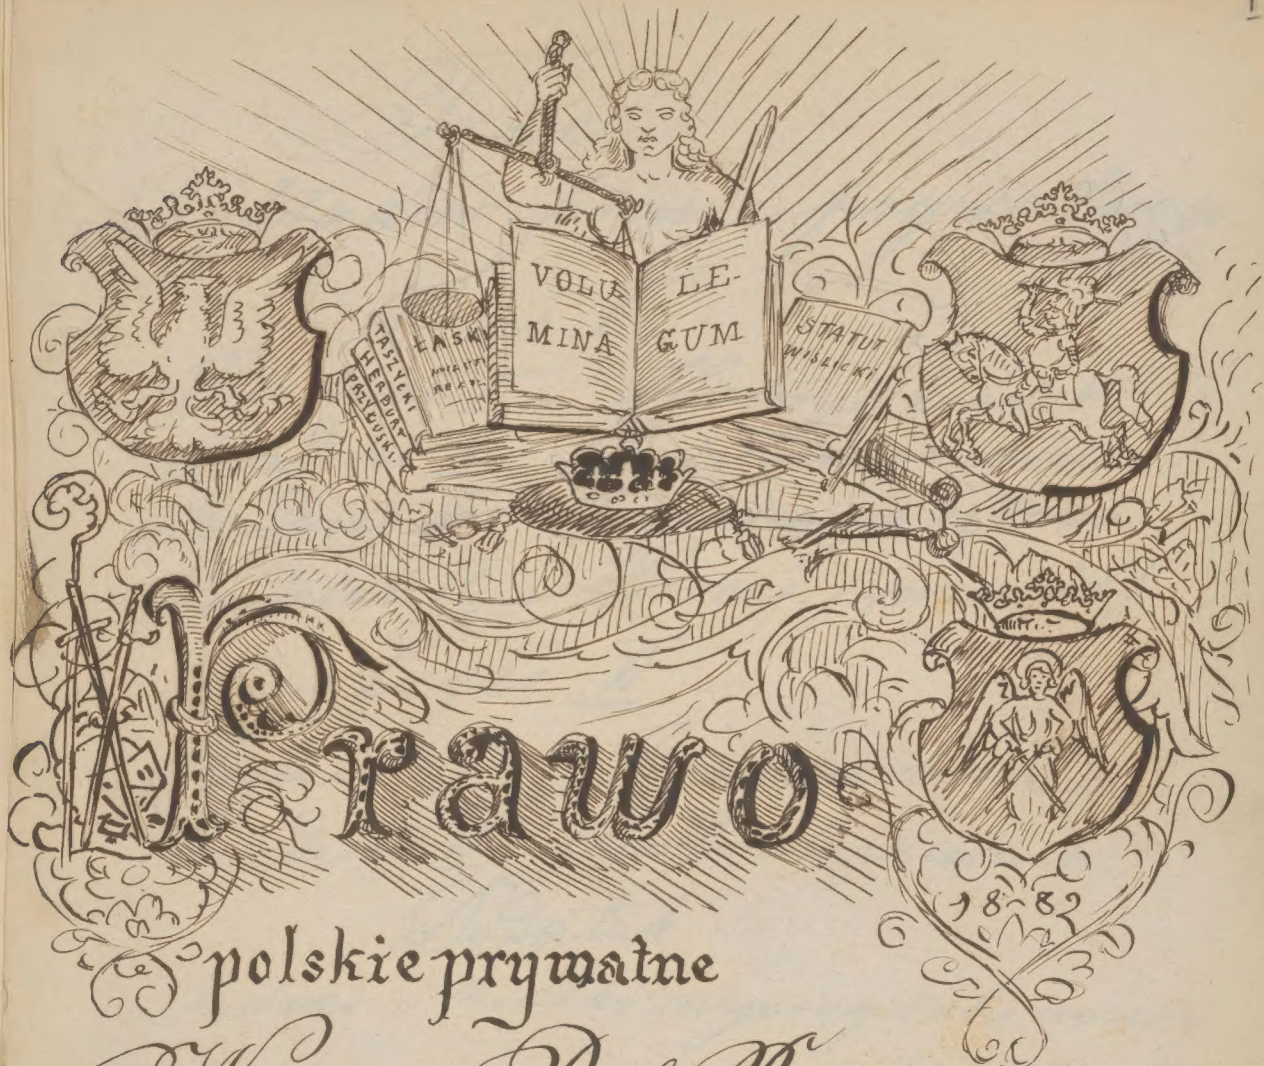 VOLU LE-
MINA GUM
TASZYCKI
HERBURT
PRZYŁUSKI
ŁASKI
STATUT
WIŚLICKI
Prawo
18-82
polskie prywatne